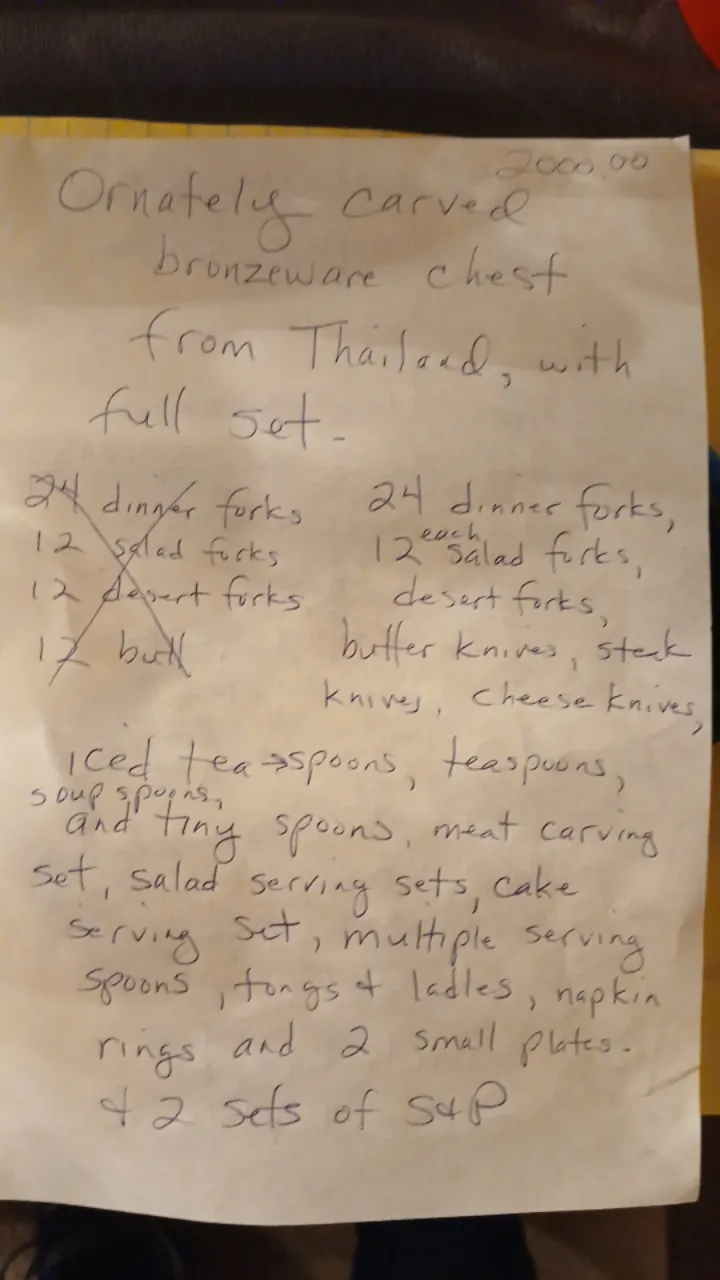 2000.00
Ornately carved
bronzeware chest
from Thailand, with
full set.
24 dinner forks
12 salad forks
12 desert forks
12 butt
24 dinner forks,
12 each salad forks,
desert forks,
butter knives, steak
knives, cheese knives,
iced tea→spoons, teaspoons,
soup spoons,
and tiny spoons, meat carving
set, salad serving sets, cake
serving set, multiple serving
spoons, tongs & ladles, napkin
rings and 2 small plates.
& 2 sets of S&P